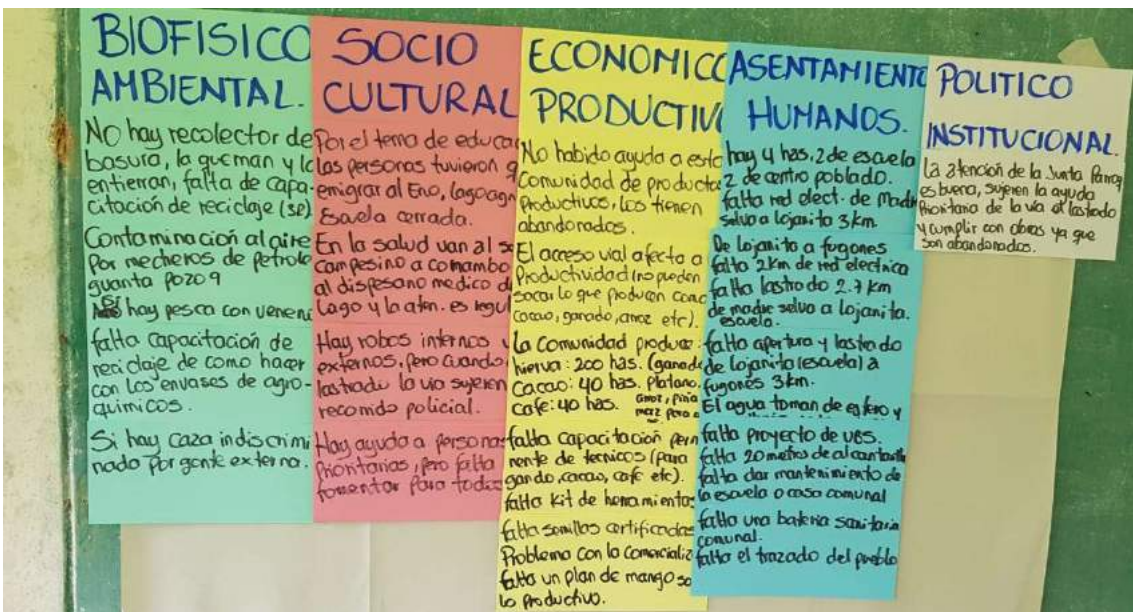 BIOFISICO
AMBIENTAL.
NO hay recolector de
basura, la queman y la
entierran, falta de capa-
citación de reciclaje (SP)
Contaminación al aire
Por mecheros de Petrole
guanta Pozo 9
hay pesca con veneno
falta capacitación de
reciclaje de como hacer
con los envases de agro-
químicos.
Si hay caza indiscrimi
nada por gente externa.
SOCIO
CULTURAL
Por el tema de educa
las personas tuvieron q
emigrar al Eno, lagoagri
Esuela cerrada.
En la salud van al se
campesino a comambo
al dispesario medico d
Lago y la aten. es regul
Hay robos internos y
externos, pero cuando
lastrado la via sujeren
recorrido policial.
Hay ayuda a personas
Prioritarias, pero falta
fomentar para todos
ECONOMICO
PRODUCTIVO
No habido ayuda a esta
Comunidad de producto
Productivos, los tienen
abandonados.
El acceso vial afecta a
Productividad (no pueden
sacar lo que producen como
cacao, ganado, arroz etc).
La Comunidad produce:
hierva: 200 has. (ganado
Cacao: 40 has. Platano,
cafe: 40 has. arroz, piña
maz para
falta capacitación perm
nente de tecnicos (para
gando, cacao, café etc).
falta kit de herramientas
falta semillas certificadas
Problema con la comercializ
falta un plan de mango so
lo productivo.
ASENTAMIENTO
HUMANOS.
hay 4 has. 2 de escuela
2 de centro poblado.
falta red elect. de Madre
selva a lojanita 3 km.
De lojanita a fugones
falta 2 km de red electrica
falta lastrado 2.7 km
de madre selva a lojanita.
escuela.
falta apertura y lastrado
de lojanita (escuela) a
fugones 3 km.
El agua toman de estero y
falta proyecto de UBS.
falta 20 metros de alcantarilla
falta dar mantenimiento de
la escuela o casa comunal
falta una bateria sanitaria
comunal.
falta el trazado del pueblo
POLITICO
INSTITUCIONAL.
La atención de la Junta Parroq
es buena, sujeren la ayuda
Prioritaria de la via al lastrado
y cumplir con obras ya que
son abandonados.